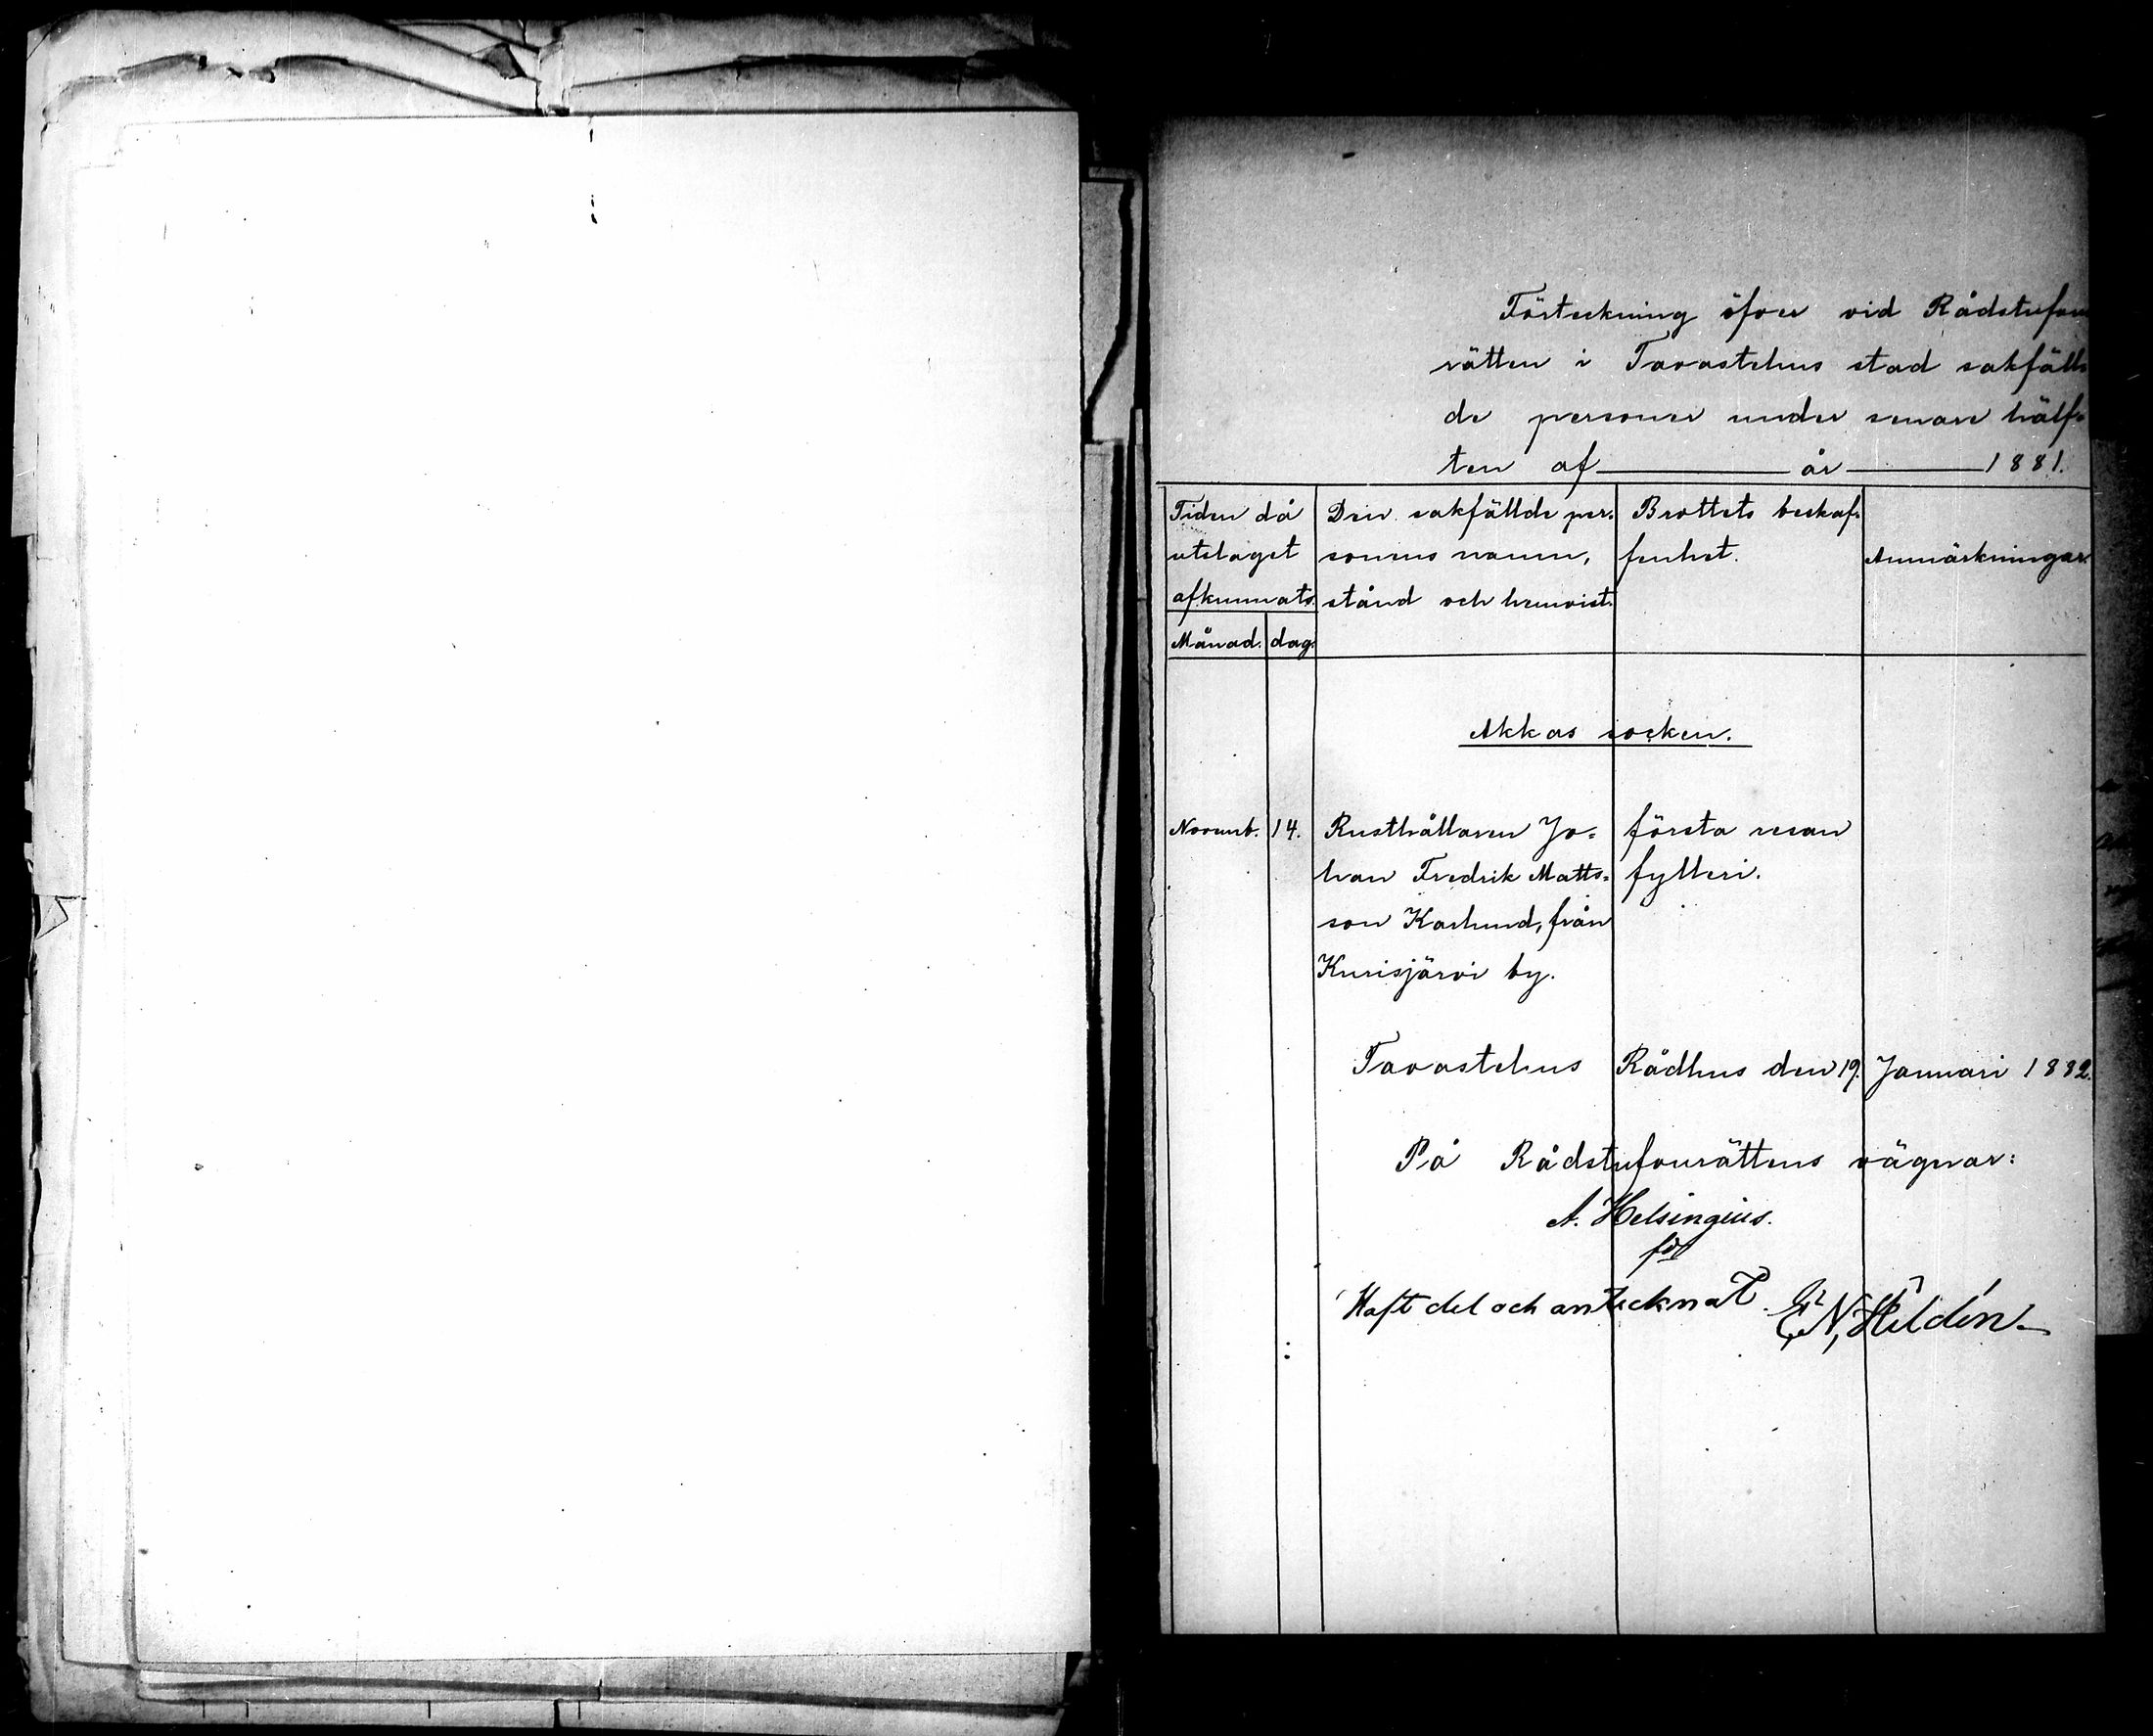 Förteckning öfver vid Rådstufvu
rätten i Tavastehus stad sakfäll-
de personer under senare hälf-
ten af — år — 1881.
Tiden då utslaget afkunnats.
Månad. dag.
Den sakfällde per-
sonens namn,
stånd och hemvist.
Brottets beskaf-
fenhet.
Anmärkningar.
Akkas socken.
Novemb. 14. Rusthållaren Jo= första resan
han Fredrik Matts= fylleri.
son Karlund, från
Kurisjärvi by.
Tavastehus Rådhus den 19. Januari 1882.
På Rådstufvurättens vägnar:
A. Helsingius.
Haft del och antecknat
Hildén